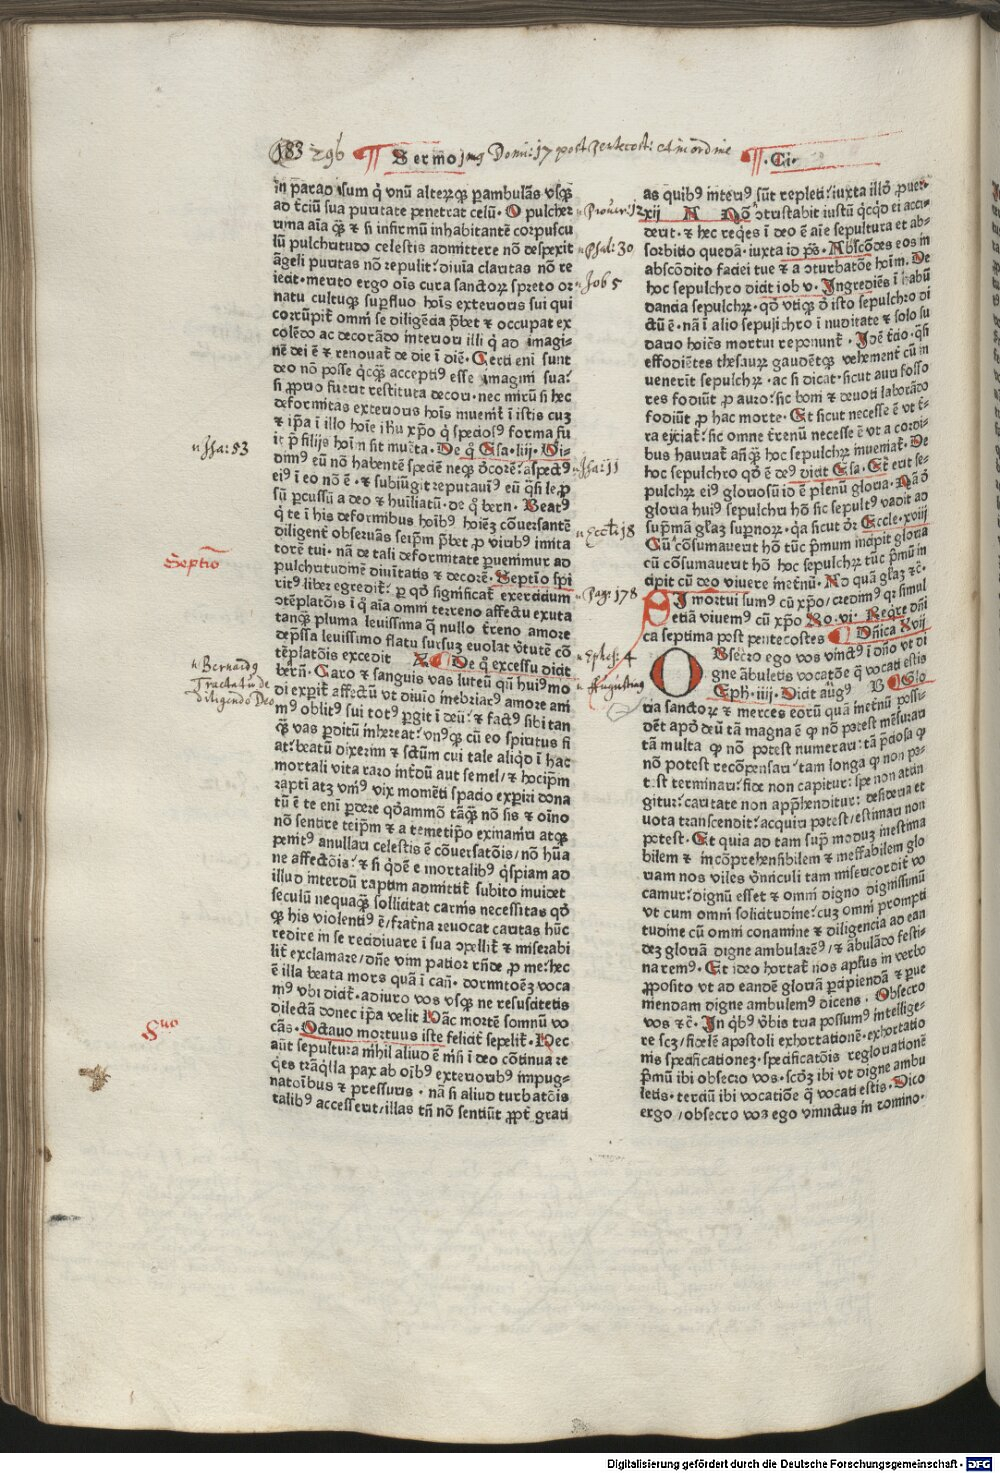 183 296 Sermo in 9 Domi: 17 post Pentecost: et in ordine
.Ci.
in parad isum q̄ vnū alterꝝqꝫ ꝑambulās vsqꝫ
ad t̄ciū sua puritate penetrat celū. O pulcher
rima aīa q̄ꝫ ⁊ si infirmū inhabitantē corpuscu
lū pulchritudo celestis admittere nō despexit
āgeli puritas nō repulit: diuīa claritas nō re
iecit. merito ergo oīs cura sanctoꝝ spreto or
natu cultuqꝫ suꝑfluo hoīs exterioris sui qui
corrūpit̄ omni se diligēcia p̄bet ⁊ occupat ex
colēdo ac decorādo interiori illi q̄ ad imagi-
nē dei ē ⁊ renouat̄ de die ī diē. Certi eni sunt
deo nō posse q̄cq̄ꝫ acceptiꝰ esse imagini sua:
si ꝓprio fuerit restituta decori. nec mirū si hec
deformitas exterioris hoīs inuenit̄ ī istis cuꝫ
⁊ ip̄a ī illo hoīe ihū xp̄o q̄ speciosꝰ forma fu
it p̄ filijs hoīm sit inuēta. De q̄ Esa. liij. Vi-
dimꝰ eū nō habentē speciē neqꝫ decorē: aspectꝰ
eiꝰ ī eo nō ē. ⁊ subiūgit reputauimꝰ eū q̄si leꝓ
sū ꝑcussū a deo ⁊ huīliatū. de q̄ bern. Beatꝰ
q̄ te ī his deformibus hoībꝰ hoīeꝫ cōuersantē
diligent̄ obseruās seip̄m p̄bet ꝓ viribꝰ imita
torē tui. nā de tali deformitate ꝑuenimur ad
pulchritudinē diuinitatis ⁊ decorē. Septīo spi
ritꝰ liber egredit̄. ꝑ qd̄ significat̄ exercicium
ɔtēplatōis ī q̄ aīa omni terreno affectu exuta
tanqꝫ pluma leuissima q̄ nullo t̄reno amore
dep̄ssa leuissimo flatu sursuꝫ euolat v̄tutē cō
tēplatōis excedit De q̄ excessu dicit
bern̄. Caro ⁊ sanguis vas luteū qn̄ huiꝰmo
di expit̄ affectū vt diuīo inebriatꝰ amore ani
mꝰ oblitꝰ sui totꝰ ꝑgit ī deū: ⁊ factꝰ sibi tan
q̄ꝫ vas ꝑditū inhereat: vnꝰqꝫ cū eo spiritus fi
at: beatū dixerim ⁊ sc̄tum cui tale aliqd̄ ī hac
mortali vita raro int̄dū aut semel / ⁊ hocip̄m
rapti atqꝫ vniꝰ vix momēti spacio exꝑiri dona
tū ē te eni ꝑdere qd̄ammō tāq̄ꝫ nō sis ⁊ oīno
nō sentire teip̄m ⁊ a temetip̄o exinaniri atqꝫ
penitꝰ anullari celestis ē cōuersatōis / nō hūa
ne affectōis: ⁊ si q̄dē e mortalibꝰ q̄spiam ad
illud interdū raptim admittit̄ subito inuidet
seculū nequaqꝫ sollicitat carnis necessitas qd̄
qꝫ his violentiꝰ ē / frat̄na reuocat caritas hūc
redire in se recidiuare ī sua ɔpellit̄ ⁊ miserabi
lit̄ exclamare / dn̄e vim patior rn̄de ꝓ me: hec
ē illa beata mors quā ī cañ. dormitoēꝫ voca
mꝰ vbi dicit̄. adiuro vos vsqꝫ ne resuscitetis
dilectā donec ip̄a velit Hāc mortē somnū vo
cās. Octauo mortuus iste felicit̄ sepelit̄. Nec
aūt sepultura nihil aliud ē nisi ī deo cōtinua re
q̄es trāq̄lla pax ab oībꝰ exterioribꝰ impug-
natoībus ⁊ pressuris. nā si aliud turbatōis
talibꝰ accesserit / illas tn̄ nō sentiūt ꝓpt̄ grati
as quibꝰ interiꝰ sūt repleti: iuxta illd̄ ꝓuer-
xij A Nō ɔtristabit iustū q̄cqd̄ ei acci-
derit. ⁊ hec req̄es ī deo ē aīe sepultura et ab-
sorbitio quedā. iuxta id ps̄. Abscōdes eos in
abscōdito faciei tue ⁊ a ɔturbatōe hoīm. De
hoc sepulchro dicit iob v. Ingrediēs ī habū
dancia sepulchꝝ. qd̄ vtiqꝫ d̄ isto sepulchro di
ctū ē. nā ī alio sepulchro ī nuditate ⁊ solo su
dario hoīes mortui reponunt̄. Idē t̄cio. q̄si
effodiētes thesauꝝ gaudētqꝫ vehement̄ cū in
venerīt sepulchꝝ. ac si dicat. sicut auri fosso
res fodiūt ꝓ auro: sic boni ⁊ deuoti laborādo
fodiūt ꝓ hac morte. Et sicut necesse ē vt t̄-
ra eijciat̄: sic omne t̄renū necesse ē vt a cordi-
bus hauriat̄ añq̄ꝫ hoc sepulchꝝ inueniat̄. De
hoc sepulchro qd̄ ē deꝰ dicit Esa. Et erit se-
pulchꝝ eiꝰ gloriosū id ē plenū gloria. Nā d̄
gloria huiꝰ sepulchri hō sic sepultꝰ vadit ad
sup̄mā gl̄aꝫ supernoꝝ. q̄a sicut dr̄ Eccle. xviij
Cū cōsumauerit hō tūc p̄mum incipit gloria
cū cōsumauerit hō hoc sepulchꝝ tūc p̄mū in
cipit cū deo viuere inet̄nū. Ad quā gl̄aꝫ ⁊c̄.
SI mortui sumꝰ cū xp̄o / credimꝰ qꝛ simul
etiā viuemꝰ cū xp̄o Ro. vi. Req̄re dñi
ca septima post pentecostes Dñica Xvij
OBsecro ego vos vinctꝰ ī dño vt di
gne ābuletis vocatōe q̄ vocati estis
Eph. iiij. Dicit aūgꝰ B Glo
ria sanctoꝝ ⁊ merces eorū quā inet̄nū possi-
dēt apd̄ deū tā magna ē ꝙ nō potest mēsurari
tā multa ꝙ nō potest numerari: tā p̄ciosa ꝙ
nō potest recōpensari: tam longa ꝙ non po-
test terminari: fide non capitur: spe non attin
gitur: caritate non app̄henditur: desideria et
vota transcendit: acquiri potest / estimari non
potest. Et quia ad tam sup̄ moduꝫ inestima
bilem ⁊ incōprehensibilem ⁊ ineffabilem glo
riam nos viles v̄niculi tam misericordit̄ vo
camur: dignū esset ⁊ omni digno dignissimū
vt cum omni solicitudine: cuꝫ omni prompti
tudine cū omni conamine ⁊ diligencia ad ean
deꝫ gloriā digne ambularēꝰ / ⁊ ābulādo festi-
naremꝰ. Et ideo hortat̄ nos apl̄us in verbo
ꝓposito vt ad eandē gloriā ꝑcipiendā ⁊ ꝑue
niendam digne ambulemꝰ dicens. Obsecro
vos ⁊c̄. In q̄bꝰ v̄bis tria possumꝰ intellige-
re scꝫ / fidelē apostoli exhortationē. exhortatio
nis specificationeꝫ. specificatōis reglorationē
p̄mū ibi obsecro vos. scd̄ꝫ ibi vt digne ambu
letis. terciū ibi vocatiōe q̄ vocati estis. Dico
ergo / obsecro vos ego vinctus in domino.
Prouer: 12
Psal: 30
Job 5
Isa: 53
Isa: 11
Eccli: 18
Septīo
Pag: 178
Ephes: 4
Augustinꝰ
Bernardꝰ
Tractatu de
diligendo Deo
8uo
Digitalisierung gefördert durch die Deutsche Forschungsgemeinschaft - DFG